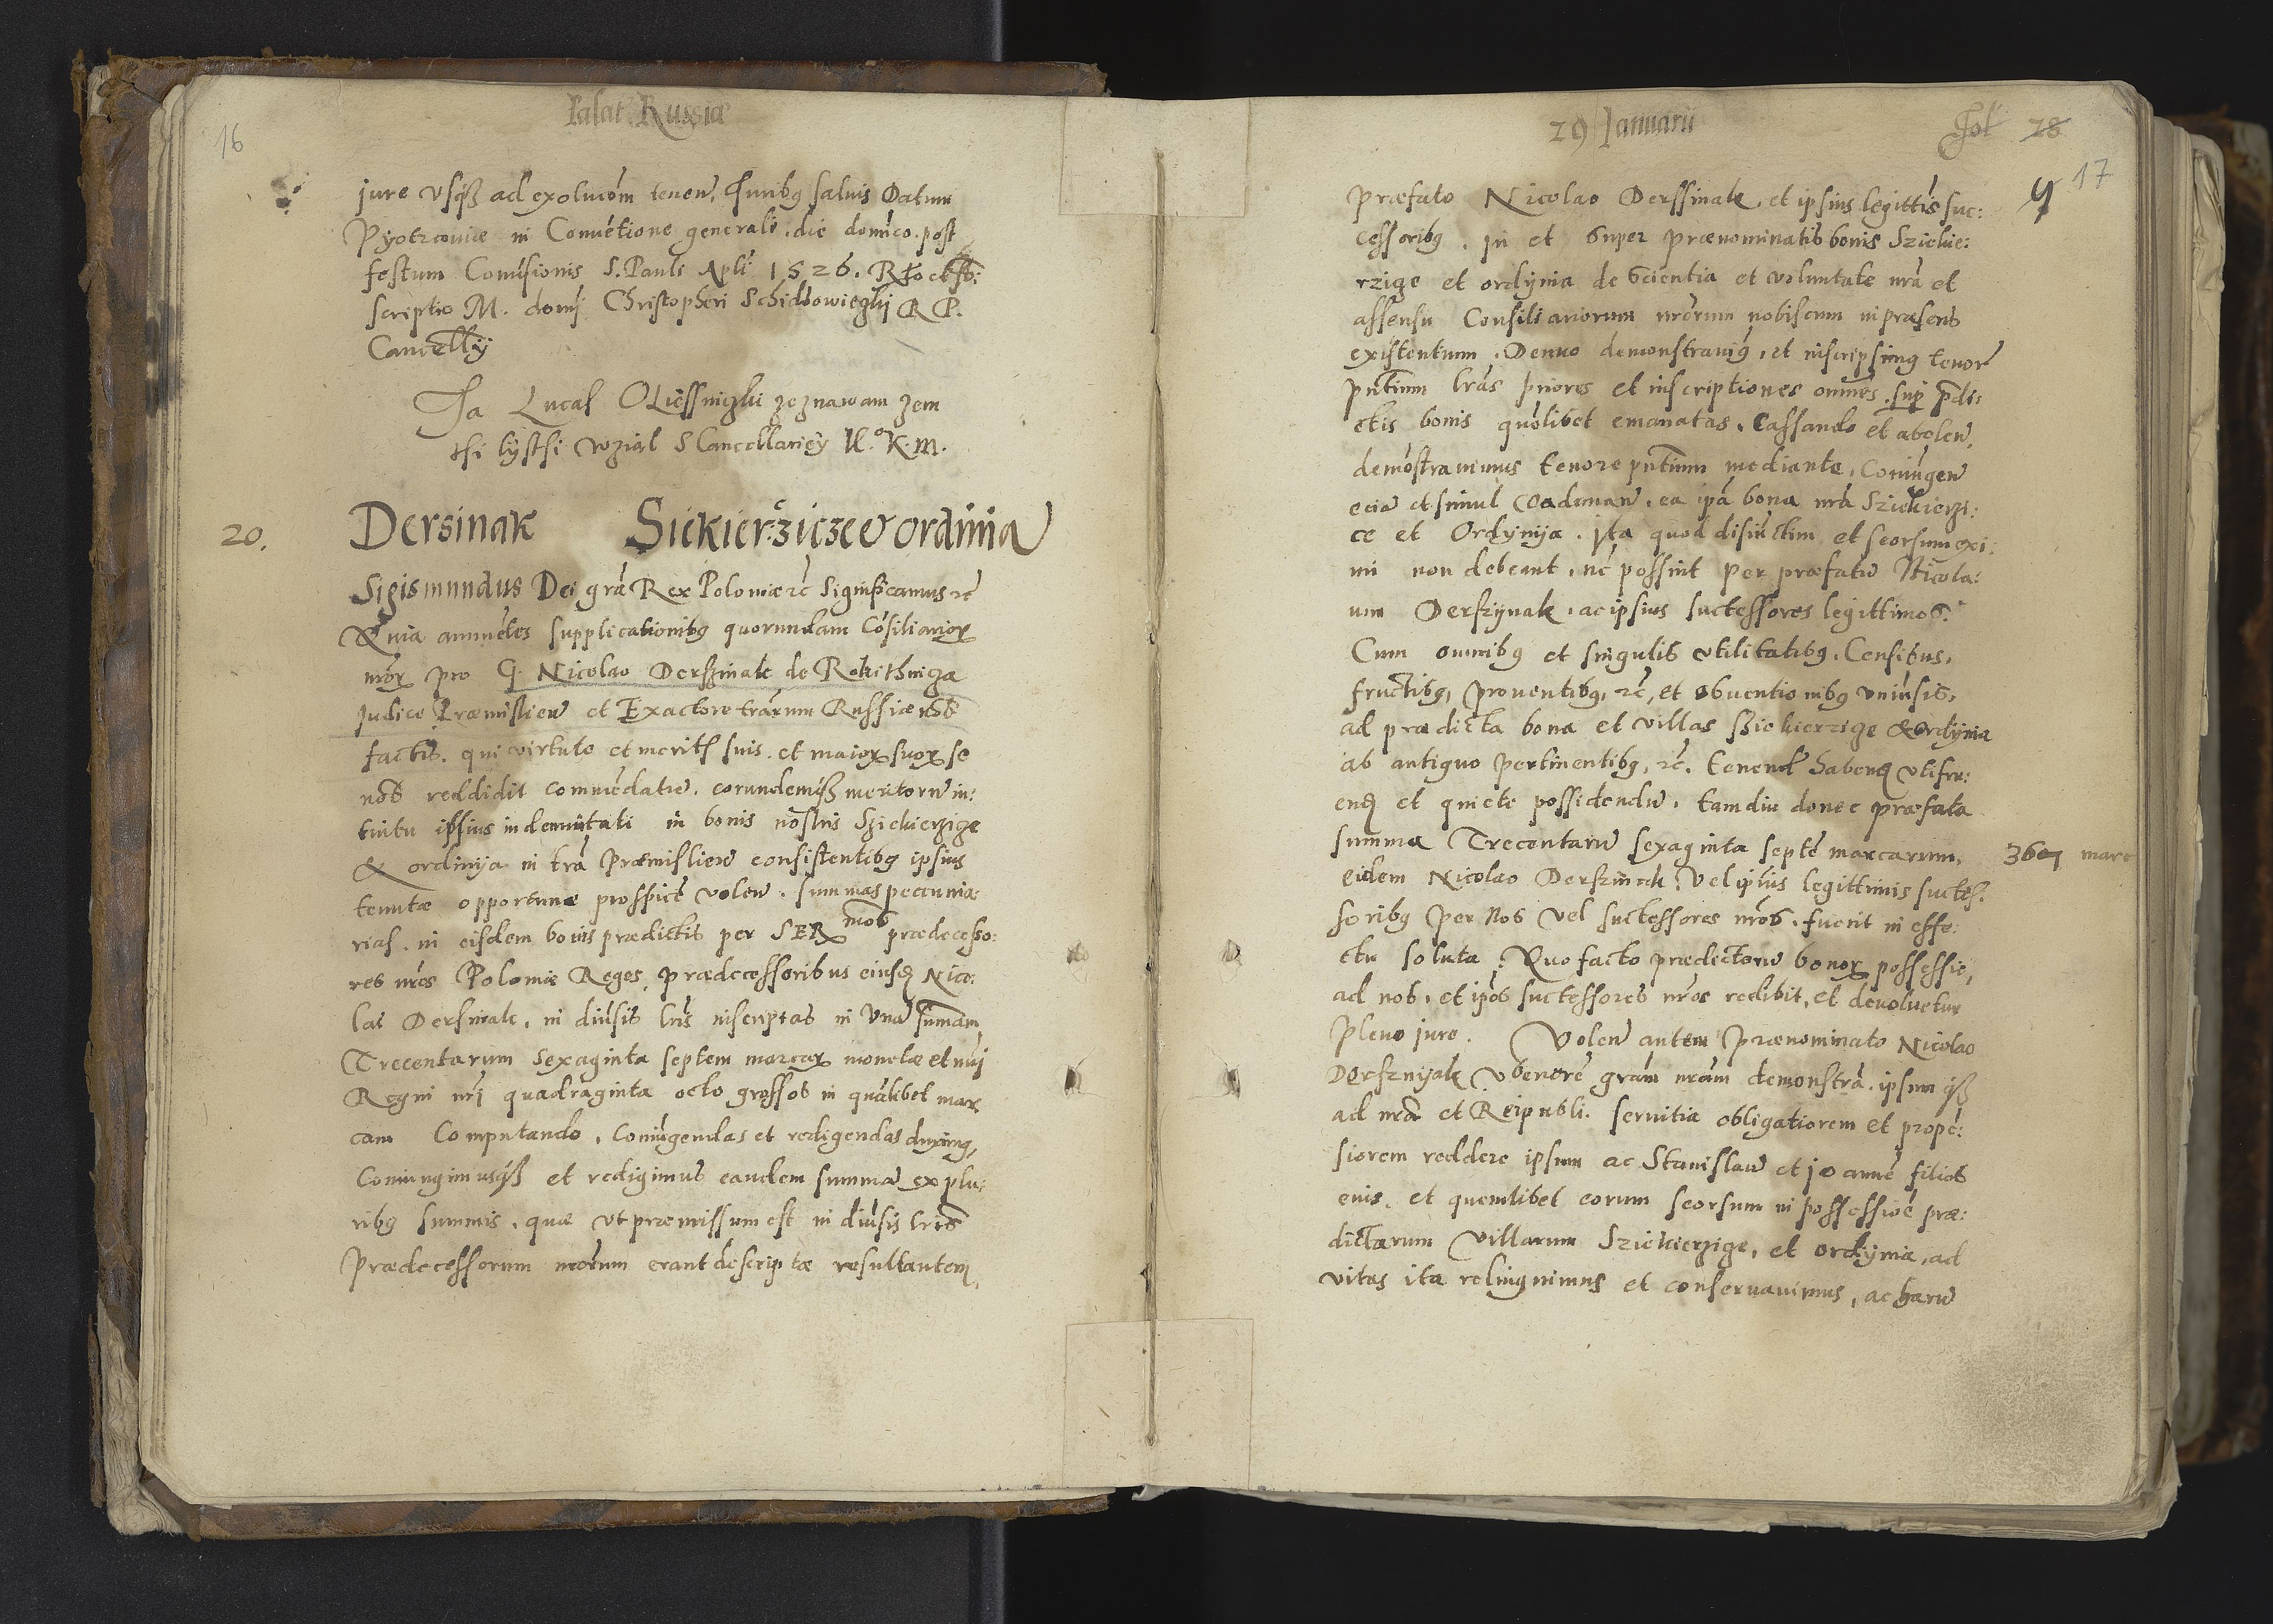 Palat Russiæ
16
jure vsq₃ ad exolucõm tenen̄. Juribꝫ saluis Datum
Pyotrcouiæ in Conuẽtione generali. die domĩco. post
festum Conũsionis S. Pauli Apli 1526. Rto et sb:
scriptio M. domĩ Christophori Schidlowieczkij R P.
Cancellÿ
Ja Lucas Oliessniczki zeznawam zem
thi lysthi wzial S Cancellariey K.° K. m.
20.
Dersinak Siekierzicze & ordinia
Sigismundus Dei grã Rex Poloniæ rc̄ Significamus rc̄
Quia annuẽtes supplicationibꝫ quorundam Cõsiliarioꝝ
nrõꝝ pro G. Nicolao Derszniak de Rokithnicza
Judice Præmislien̄ et Exactore trãrum Russiæ nob
factis. qui virtute et meritis suis. et maioꝝ suoꝝ se
nob reddidit commẽdatū. eorundemq₃ meritorū in:
tuitu ipsius indemnitati in bonis nostris Sziekierzice
& ordinija in trã Præmislien̄ consistentibꝫ ipsius
tenutæ opportune prospicẽ volen̄. summas pecunia:
rias. in eisdem bonis prædictis per SER mos prædecesso:
res nrõs Poloniæ Reges, prædecessoribus eiusdē Nico:
lai Dersniak. in diuīsis lris inscriptas in Vnā sūmam
Trecentarum Sexaginta septem marcaꝝ monetæ et nũi
Regni nrĩ quadraginta octo grossos in quālibet mar
cam Computando. Coniũgendas et redigendas duximꝫ,
Coniungimusq₃ et redigimus eandem summā ex plu:
ribꝫ summis. quæ vt præmissum est in diũsis lris
Prædecessorum nrõrum erant descriptæ resultantem,
29 Januarii
Fol 28
17
9
Præfato Nicolao Derssniak. et ipsius legittīs suc:
cessoribꝫ. in et super prænominatis bonis Sziekie:
rzige et ordynia de scientia et voluntate nrã et
assensu Consiliariorum nrõrum nobiscum in præsens
existentium. Denuo demonstrauimꝫ, et inscripsimꝫ tenorē
pntium lrãs priores et inscriptiones omnẽs. sup pdi:
ctis bonis quõlibet emanatas. Cassando et abolen̄.
demõstrauimus tenore pntium mediante, Coniũgen̄
eciā et simul Coadunan̄. ea ipã bona nrã Sziekierzi:
ce et Ordynija. Ita quod disiũctim et seorsum exi:
mi non debeant. nẽ possint per præfatū Nicola:
um Derszynak. ac ipsius successores legittimos.
Cum omnibꝫ et singulis vtilitatibꝫ. Censibus.
fructibꝫ, prouentibꝫ, rc̄, et obuentionibꝫ vniũsis,
ad prædicta bona et villas Sziekierzige & Ordynia
ab antiquo pertinentibꝫ, rc̄. tenend habend vtifru:
end et quiete possidendū. tamdiu donec præfata
summa Trecentarū sexaginta septē marcarum,
367 marc
eidem Nicolao Dersznack. Vel ipsius legittimis succes:
soribꝫ per nos vel successores nrõs. fuerit in effe:
ctu soluta. Quo facto prædictorū bonoꝝ possessio,
ad nos. et ipos successores nrõs redibit, et deuoluetur
pleno jure. Volen̄ autem Prænominato Nicolao
Dersznijak vberiorē grãm nrãm demonstrã. ipsum q₃
ad nrã et Reipubli. seruitia obligatiorem et propẽ:
siorem reddere ipsum ac Stanislaū et joannē filios
eius. et quemlibet eorum seorsum in possessiõe præ:
dictarum Villarum Sziekierzige, et ordynia, ad
vitas ita relinquimus et conseruauimus, ac harū